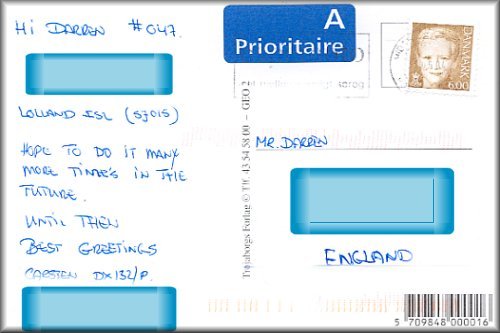 Hi DARREN #047.
LOLLAND ISL (SJ015)
HOPE TO DO IT MANY
MORE TIME'S IN THE
FUTURE.
UNTIL THEN
BEST GREETINGS
CARSTEN DX132/P.
A
Prioritaire
DANMARK
6.00
Trojaborgs Forlag © Tlf. 43 54 38 00 – GEO 2
MR. DARREN
ENGLAND
5 709848 000016